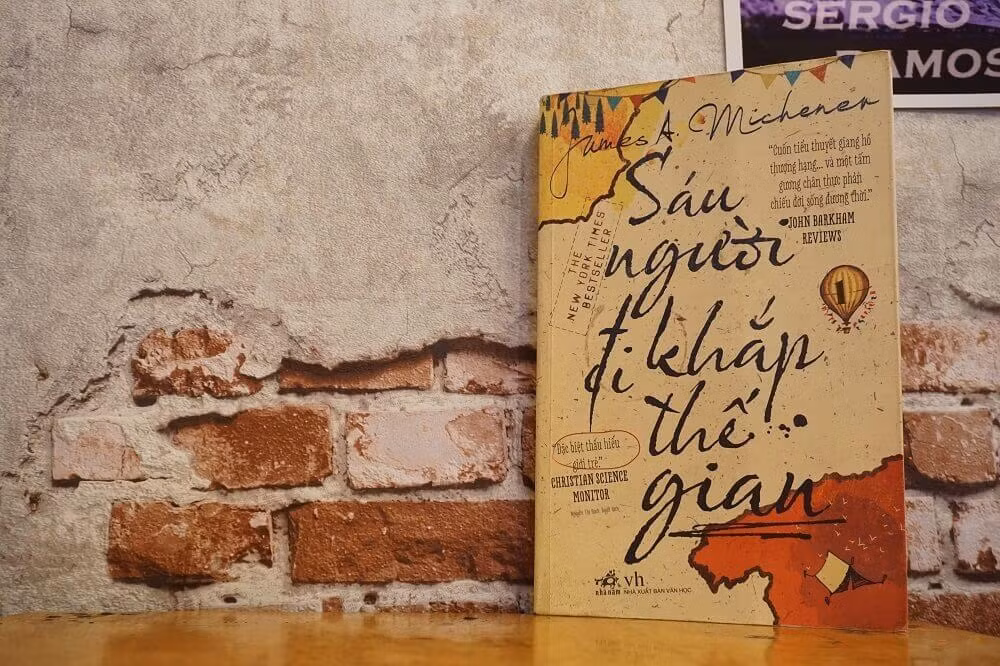 SERGIO
RAMOS
James A. Michener
"Cuốn tiểu thuyết giang hồ
thượng hạng... và một tấm
gương chân thực phản
chiếu đời sống đương thời."
JOHN BARKHAM
REVIEWS
THE
NEW YORK TIMES
BESTSELLER
Sáu
người
đi khắp
thế
gian
"Đặc biệt thấu hiểu
giới trẻ."
CHRISTIAN SCIENCE
MONITOR
nhã nam
vh
NHÀ XUẤT BẢN VĂN HỌC